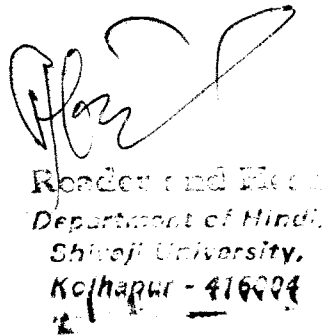 Reader and Head
Department of Hindi,
Shivaji University,
Kolhapur - 416004